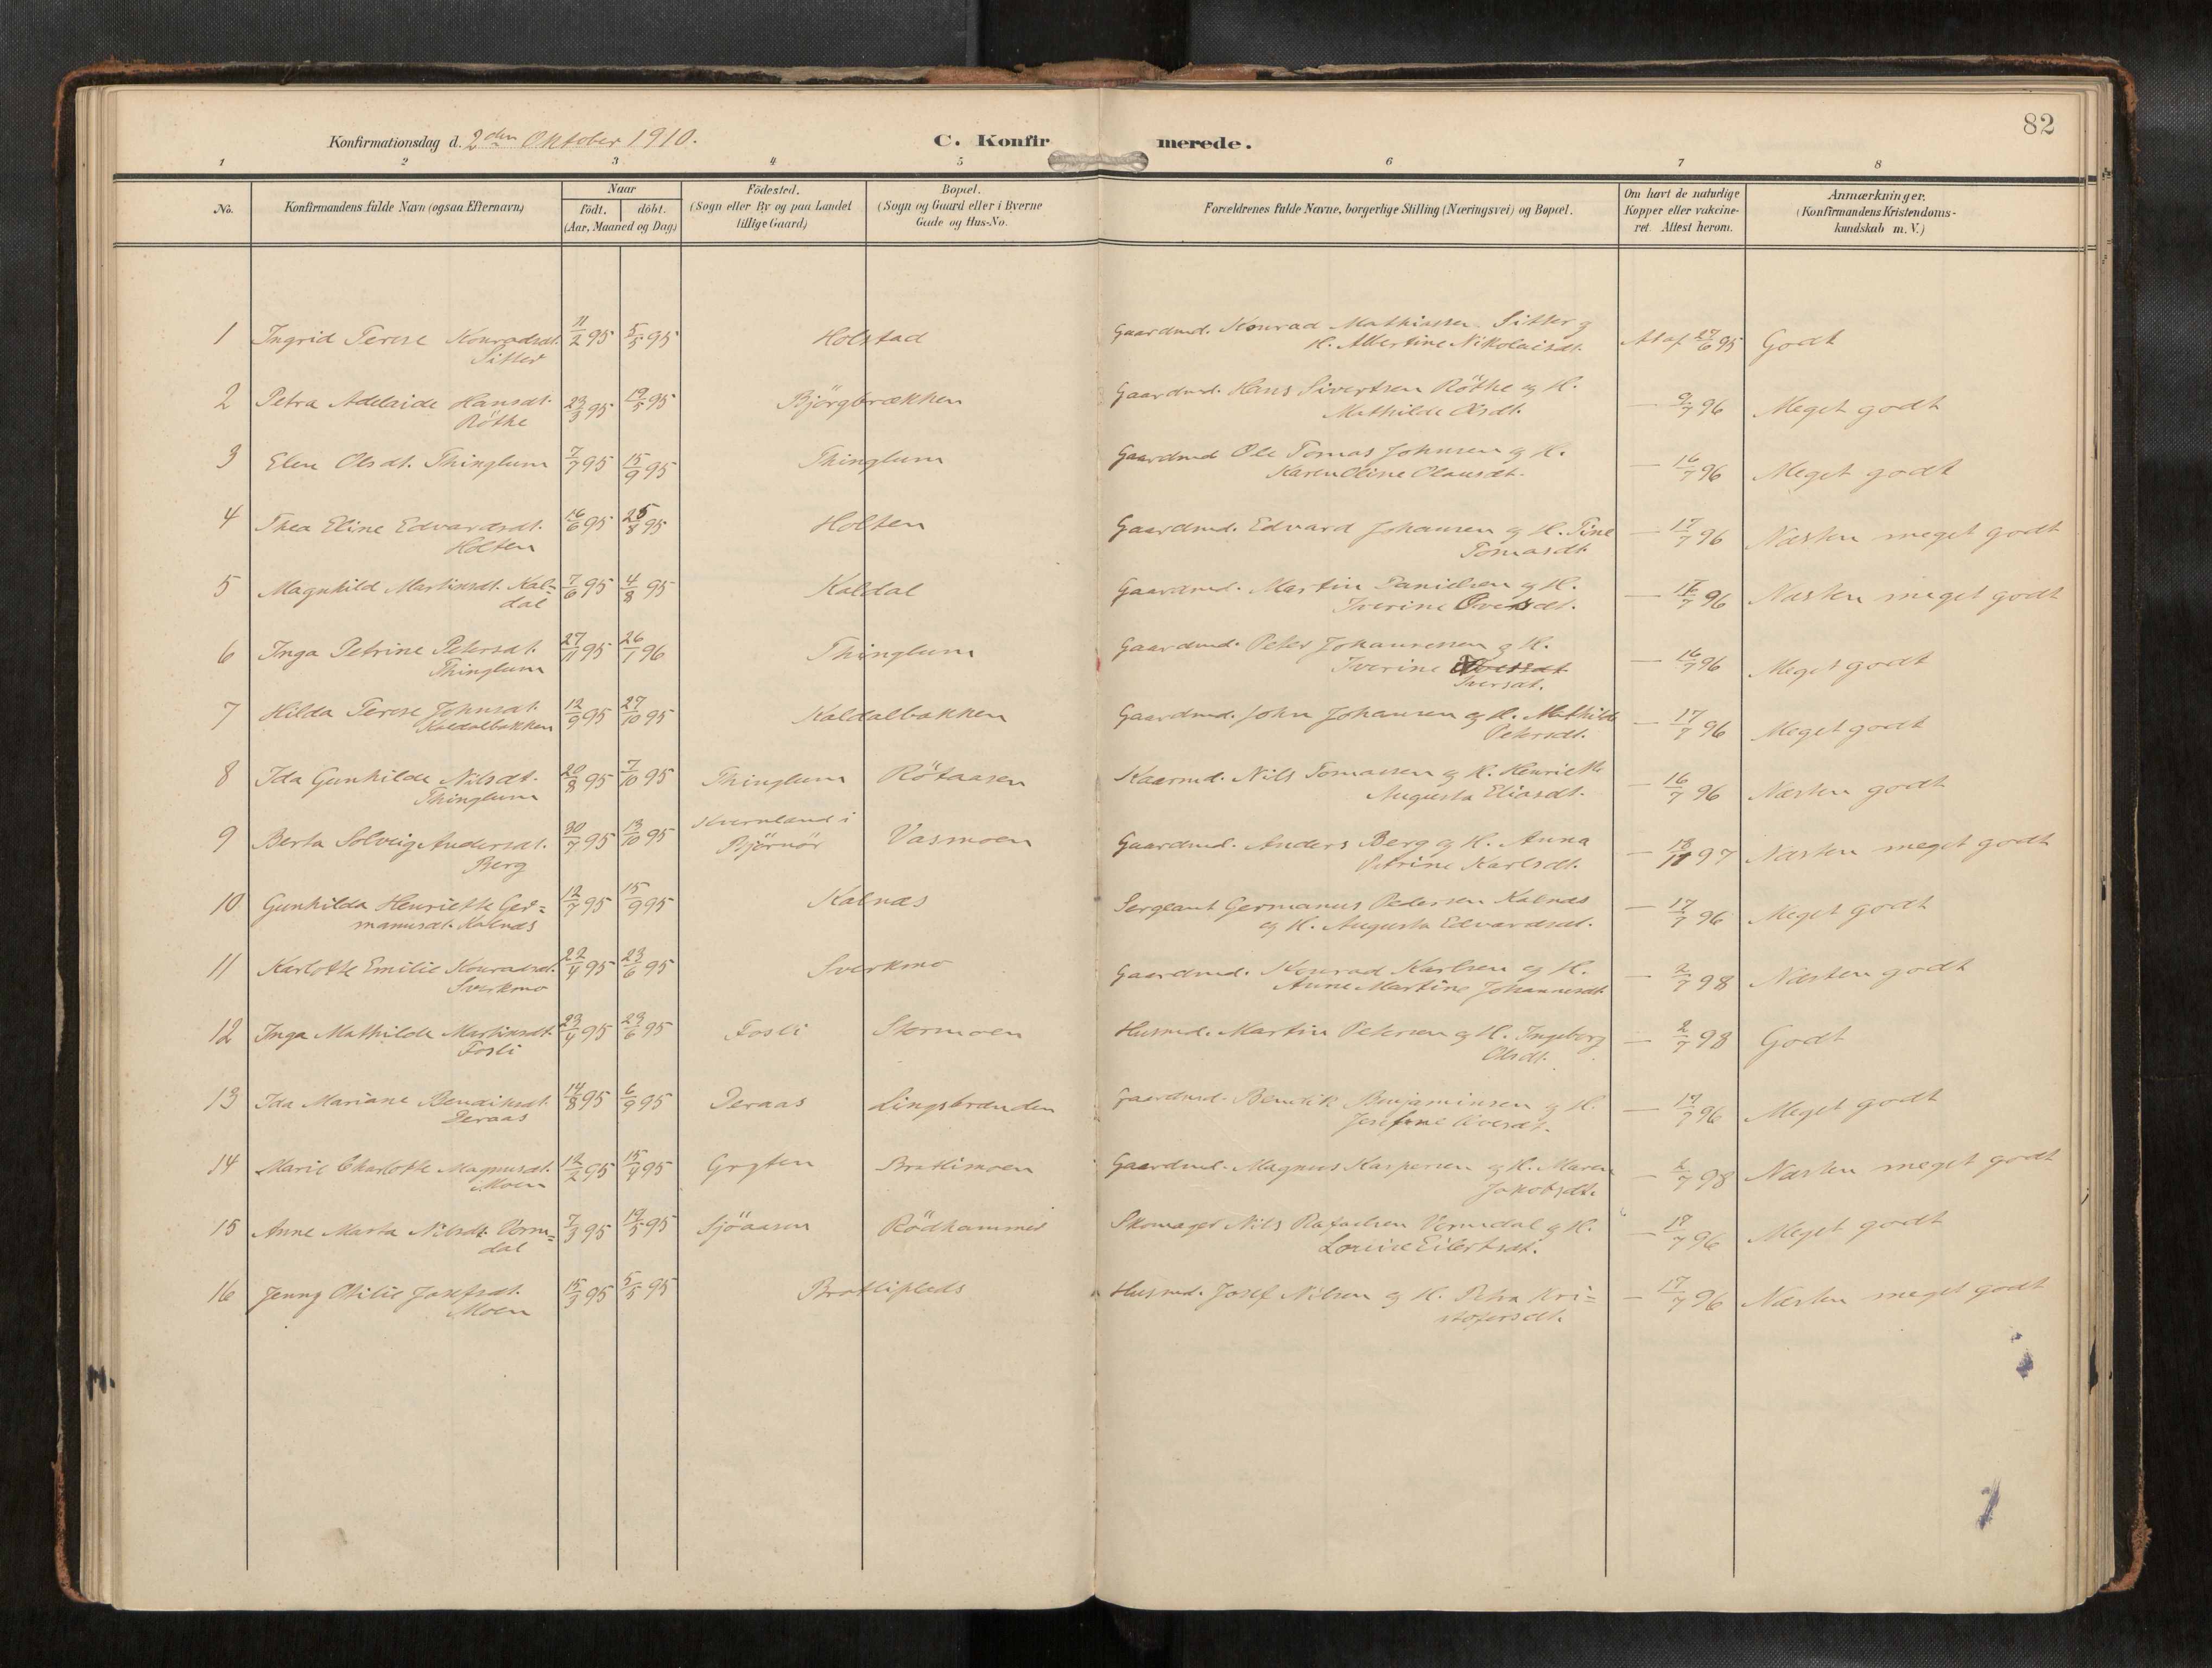 82
Konfirmationsdag d. 2den Oktober 1910.
C. Konfirmerede.
1 2 3 4 5 6 7 8
No.
Konfirmandens fulde Navn (ogsaa Efternavn)
Naar
födt. döbt.
(Aar, Maaned og Dag)
Födested.
(Sogn eller By og paa Landet
tillige Gaard)
Bopæl.
(Sogn og Gaard eller i Byerne
Gade og Hus-No.
Forældrenes fulde Navne, borgerlige Stilling (Næringsvei) og Bopæl.
Om havt de naturlige
Kopper eller vakcine-
ret. Attest herom.
Anmærkninger.
(Konfirmandens Kristendoms-
kundskab m.V.)
1 Ingrid Terese Konradsdt. 11/2 95 5/5 95 Holstad Gaardmd. Konrad Mathiassen Sitter og Ataf 27/6 95 Godt
Sitter H. Albertine Nikolaisdt.
2 Petra Adelaide Hansdt. 23/3 95 19/5 95 Björgbrækken Gaardmd. Hans Sivertsen Röthe og H. — 9/7 96 Meget godt
Röthe Mathilde Olsdt.
3 Elen Olsdt. Thinglum 7/7 95 15/9 95 Thinglum Gaardmd Ole Tomas Johnsen og H. — 16/7 96 Meget godt
Karen Oline Olausdt.
4 Thea Eline Edvardsdt. 16/6 95 25/8 95 Holten Gaardmd. Edvard Johansen og H. Tine — 17/7 96 Næsten meget godt
Holten Tomasdt.
5 Magnhild Martinsdt. Kal= 7/6 95 4/8 95 Kaldal Gaardmd. Martin Danielsen og H. — 17/7 96 Næsten meget godt
dal Iverine
6 Inga Petrine Petersdt. 27/11 95 26/1 96 Thinglum Gaardmd. Peter Johannessen og H. — 16/7 96 Meget godt
Thinglum Iverine
Iversdt.
7 Hilda Terese Johnsdt. 12/9 95 27/10 95 Kaldalbakken Gaardmd. John Johansen og H. Mathilde — 17/7 96 Meget godt
Kaldalbakken Petersdt.
8 Ida Gunhilde Nilsdt. 20/8 95 7/10 95 Thinglum Rötaasen Kaarmd. Nils Tomassen og H. Henriette — 16/7 96 Næsten godt
Thinglum Augusta Eliasdt.
9 Berta Solveig Andersdt. 30/7 95 13/10 95 Hvernland i Björnör Vasmoen Gaardmd. Anders Berg og H. Anna — 18/11 97 Næsten meget godt
Berg Petrine Karlsdt.
10 Gunhilda Henriette Ger= 12/7 95 15/9 95 Kalnæs Sergeant Germanus Pedersen Kalnæs — 17/7 96 Meget godt
manusdt. Kalnæs og H. Augusta Edvardsdt.
11 Karlotte Emilie Konradsdt. 22/4 95 23/6 95 Sverkmo Gaardmd. Konrad Karlsen og H. — 2/7 98 Næsten godt
Sverkmo Anne Martine Johannesdt.
12 Inga Mathilde Martinsdt. 23/4 95 23/6 95 Fosli Stormoen Husmd. Martin Petersen og H. Ingeborg — 2/7 98 Godt
Fosli Olsdt.
13 Ida Mariane Bendiksdt. 14/8 95 6/9 95 Deraas Lingsbrænden Gaardmd. Bendik Benjaminsen og H. — 17/7 96 Meget godt
Deraas Josefine
14 Marie Charlotte Magnusdt. 12/2 95 15/4 95 Grytten Brattimoen Gaardmd. Magnus Kaspersen og H. Maren — 2/7 98 Næsten meget godt
Moen Jakobsdt.
15 Anne Marta Nilsdt. Værm= 7/3 95 19/5 95 Sjöaasen Rödhammer Skomager Nils Rafaelsen Værmdal og H. — 17/7 96 Meget godt
dal Lovise Eilertsdt.
16 Jenny Otilie Josefsdt. 15/3 95 5/5 95 Brattiplads Husmd. Josef Nilsen og H. Petra Kri= — 17/7 96 Næsten meget godt
Moen stofersdt.